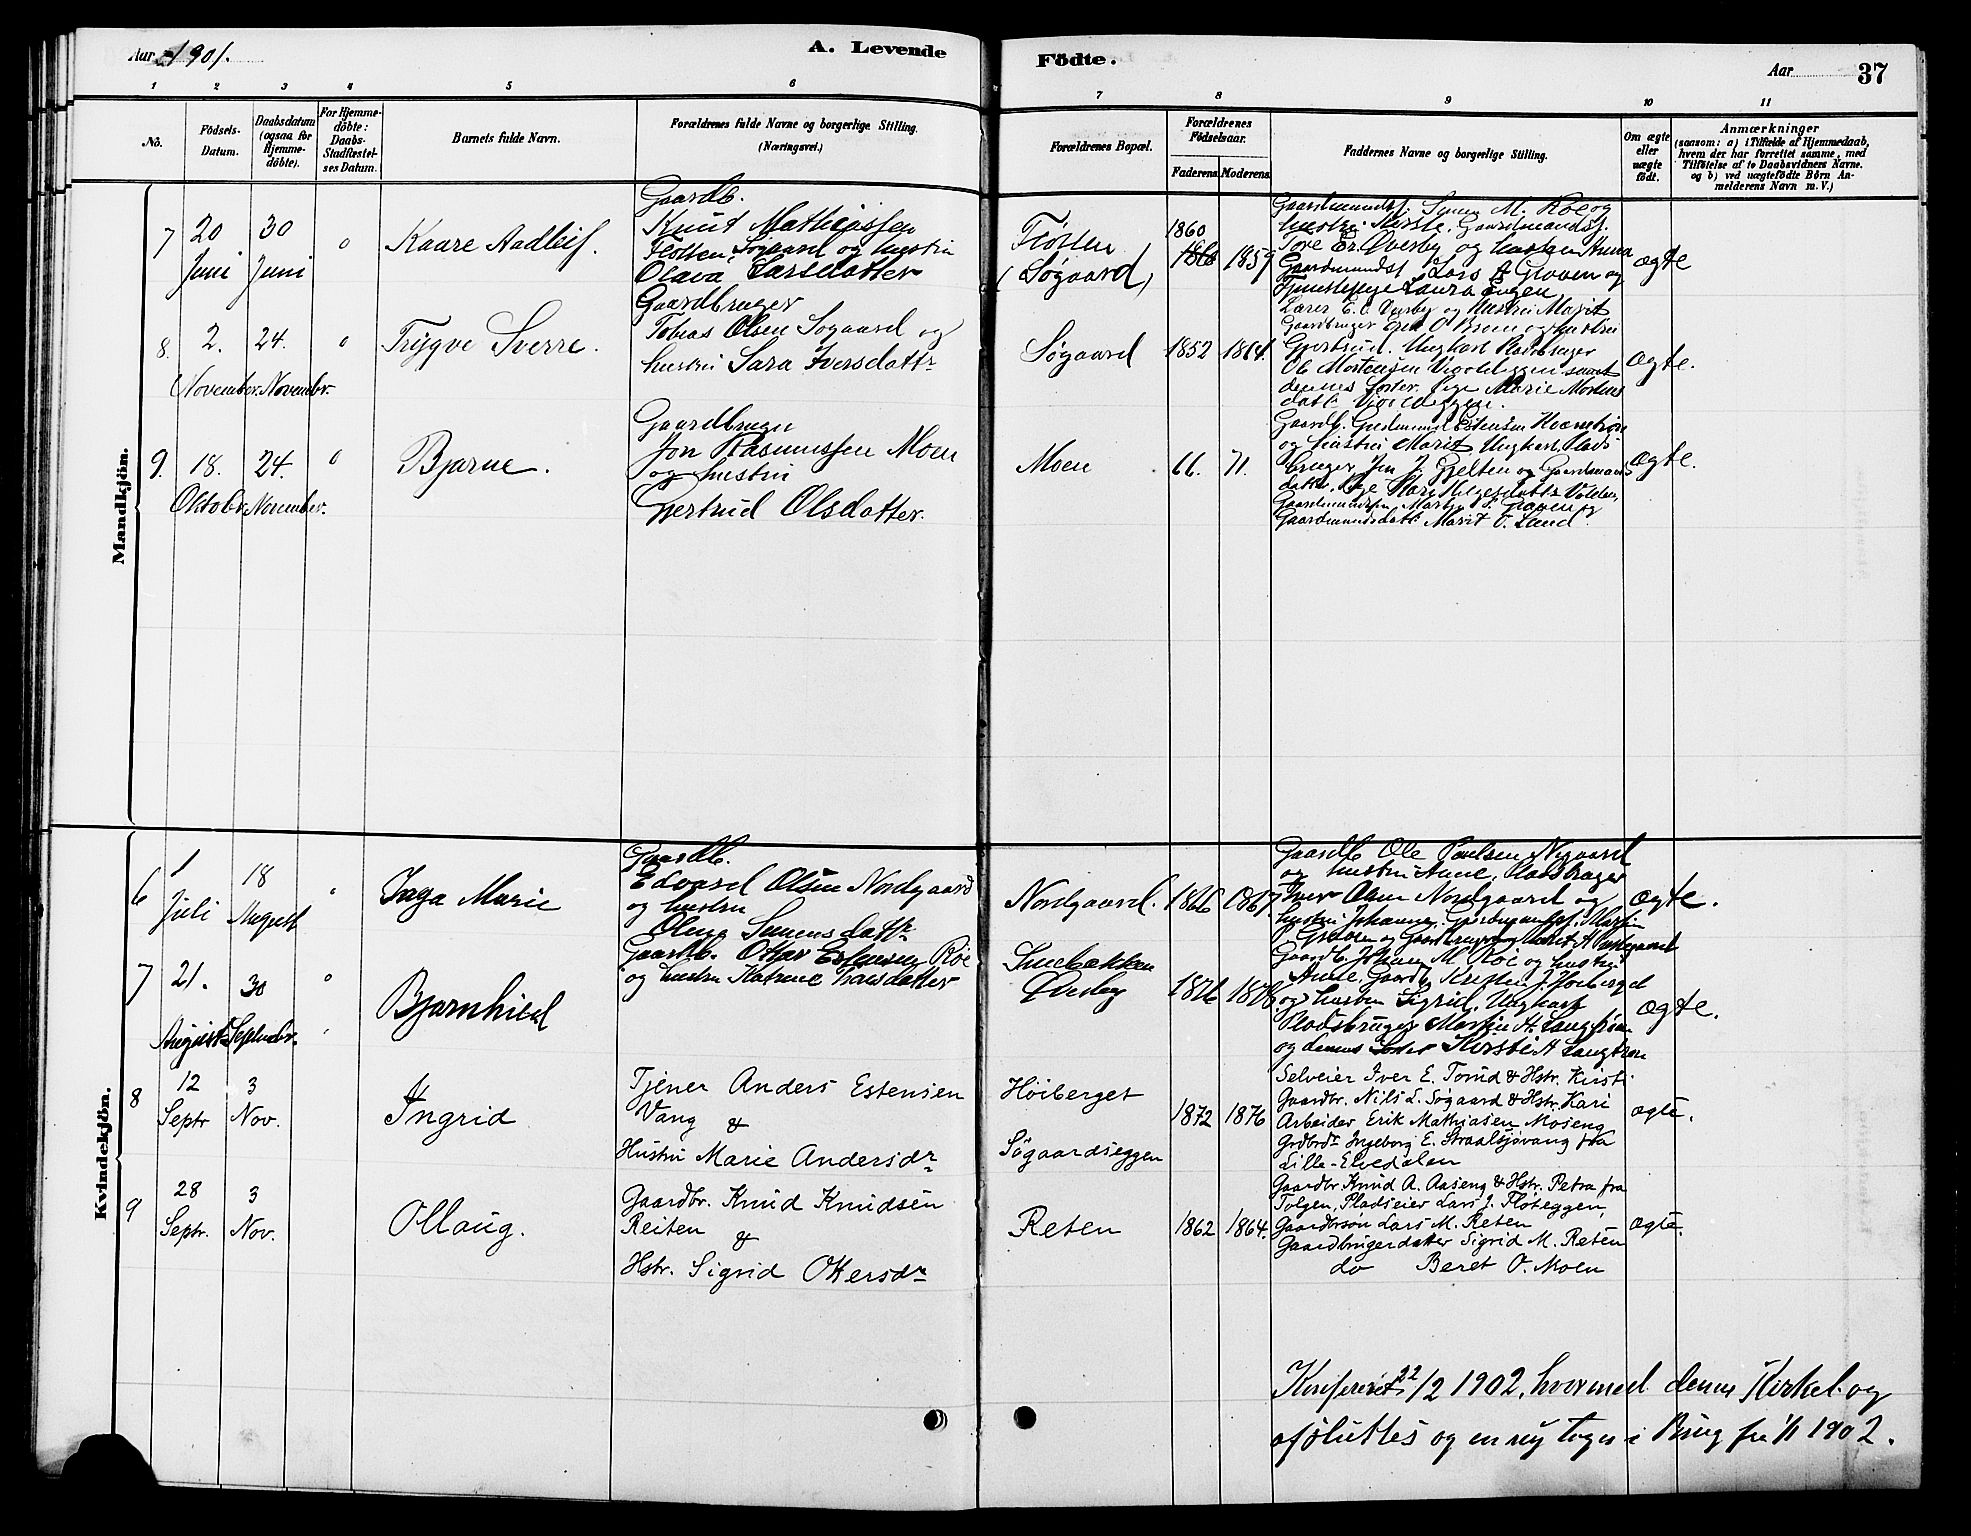 Aar 1901.
A. Levende
Födte.
Aar
37
1 2 3 4 5 6 7 8 9 10 11
No.
Födsels-
Datum.
Daabsdatum
(ogsaa for
Hjemme-
döbte).
For Hjemme-
döbte:
Daabs-
Stadfæstel-
ses Datum.
Barnets fulde Navn.
Forældrenes fulde Navne og borgerlige Stilling.
(Næringsvei.)
Forældrenes Bopæl.
Forældrenes
Födselsaar.
Faderens Moderens
Faddernes Navne og borgerlige Stilling.
Om ægte
eller
uægte
födt.
Anmærkninger
(saasom: a) i Tilfælde af Hjemmedaab,
hvem der har forrettet samme, med
Tilföielse af to Daabsvidners Navne.
og b) ved uægtefödte Börn An-
melderens Navn m. V.)
Mandkjön.
7
20
Juni
30
Juni
Kaare Aadleif.
Gaardb.
Knut Mathiassen
Flotten, Søgaard og hustru
Olava Larsdatter
Flotten
(Søgaard)
1860
1859
hustru Kirste, Gaardmandsf.
Tore Er. Øversby og hustru Anna
Gaardmandsf Lars A Groven og
Tjenestepige Laura Engen
ægte
8.
2.
November
24.
Novembr.
Trygve Sverre.
Gaardbruger
Tobias Olsen Søgaard og
hustru Sara Iversdattr
Søgaard
1852
1864.
Lærer E. O. Øversby og Hustru Marit
Gaardbruger Erik O Moen og Hustru
Gjertrud. Ungkarl Pladsbruger
Ole Mortensen
dennes Søster Pige Marie Mortens
datt.
ægte.
9.
18.
Oktobr.
24.
November.
Bjarne.
Gaardbruger
Jon Rasmussen Moen
og hustru
Gjertrud Olsdatter.
Moen
66.
71.
og hustru Marit Ungkarl, Plads
bruger Jon J. Gjelten og Gaardmands
datter, Pige
Gaardmandssøn Martin T. Groven og
Gaardmandsdatt. Marit O. Lund.
ægte.
Kvindekjön.
6
1
Juli
18
August
Inga Marie
Gaardb.
Edvard Olsen Nordgaard
og hustru
Oluga Simensdattr
Nordgaard.
1866
1867
Gaardb Ole Paulsen Nygaard
og hustru Anne, Pladsbruger
Iver Olsen Nordgaard og
hustru Johanne,
ægte.
7
21.
August
30
September
Bjarnhild
Gaardb. Ottar Estensen Roe
og hustru Katrine
Øversby
1876
1878
Gaardb. Johan M Roe og hustru
Anne Gaardb. Kristen J. Høiberget
og hustru Sigrid. Ungkarl
Pladsbruger Martin H. Langtrøen
og dennes Søster Kirsti H Langtrøen
ægte.
8
12
Septr
3
Nov.
Ingrid
Tjener Anders Estensen
Vang &
Hustru Marie Andersdr
Høiberget
Søgaardseggen
1872
1876
Selveier Iver E. Tomd & Hstr. Kirsti
Gaardbr. Nils L. Søgaard & Hstr. Kari
Arbeider Erik Mathiasen Moseng
Grdbrdr. Ingeborg E. Straalsjøvang fra
Lille-Elvedalen
ægte.
9
28
Septr.
3
Nov.
Ollaug.
Gaardbr. Knud Knudsen
Reiten
&
Hstr. Sigrid Ottersdr
Reten
1862
1864.
Gaardbr. Knud A. Aaseng & Hstr. Petra fra
Tolgen, Pladseier Lars J. Fløteggen,
Gaardbrsøn Lars M. Reten
Gaardbrugerdatter Sigrid M. Reten
do Beret O. Moen
ægte.
Konfereret 22/2 1902, hvormed denne Kirkeb. og
afsluttes og en ny tages i Brug fra 1/1 1902.